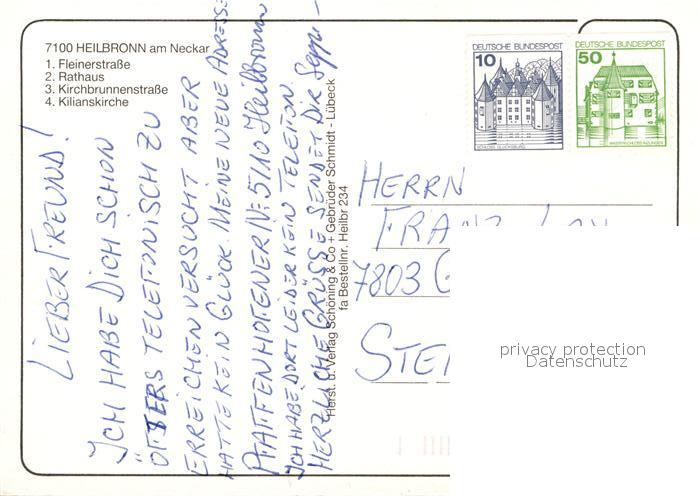 7100 HEILBRONN am Neckar
1. Fleinerstraße
2. Rathaus
3. Kirchbrunnenstraße
4. Kilianskirche
DEUTSCHE BUNDESPOST
10
SCHLOSS GLÜCKSBURG
DEUTSCHE BUNDESPOST
50
WASSERSCHLOSS INZLINGEN
LIEBER FREUND!
ICH HABE DICH SCHON
ÖFTERS TELEFONISCH ZU
ERREICHEN VERSUCHT ABER
HATTE KEIN GLÜCK. MEINE NEUE ADRESSE
PFAFFENHOFENER Nr: 5/10 Heilbronn
ICH HABE DORT LEIDER KEIN TELEFON.
HERZLICHE GRÜSSE SENDET DIR Seppi-
Herst. u. Verlag Schöning & Co + Gebrüder Schmidt - Lübeck
fa Bestellnr. Heilbr 234
HERRN
FRANZ
7803
STE
privacy protection
Datenschutz